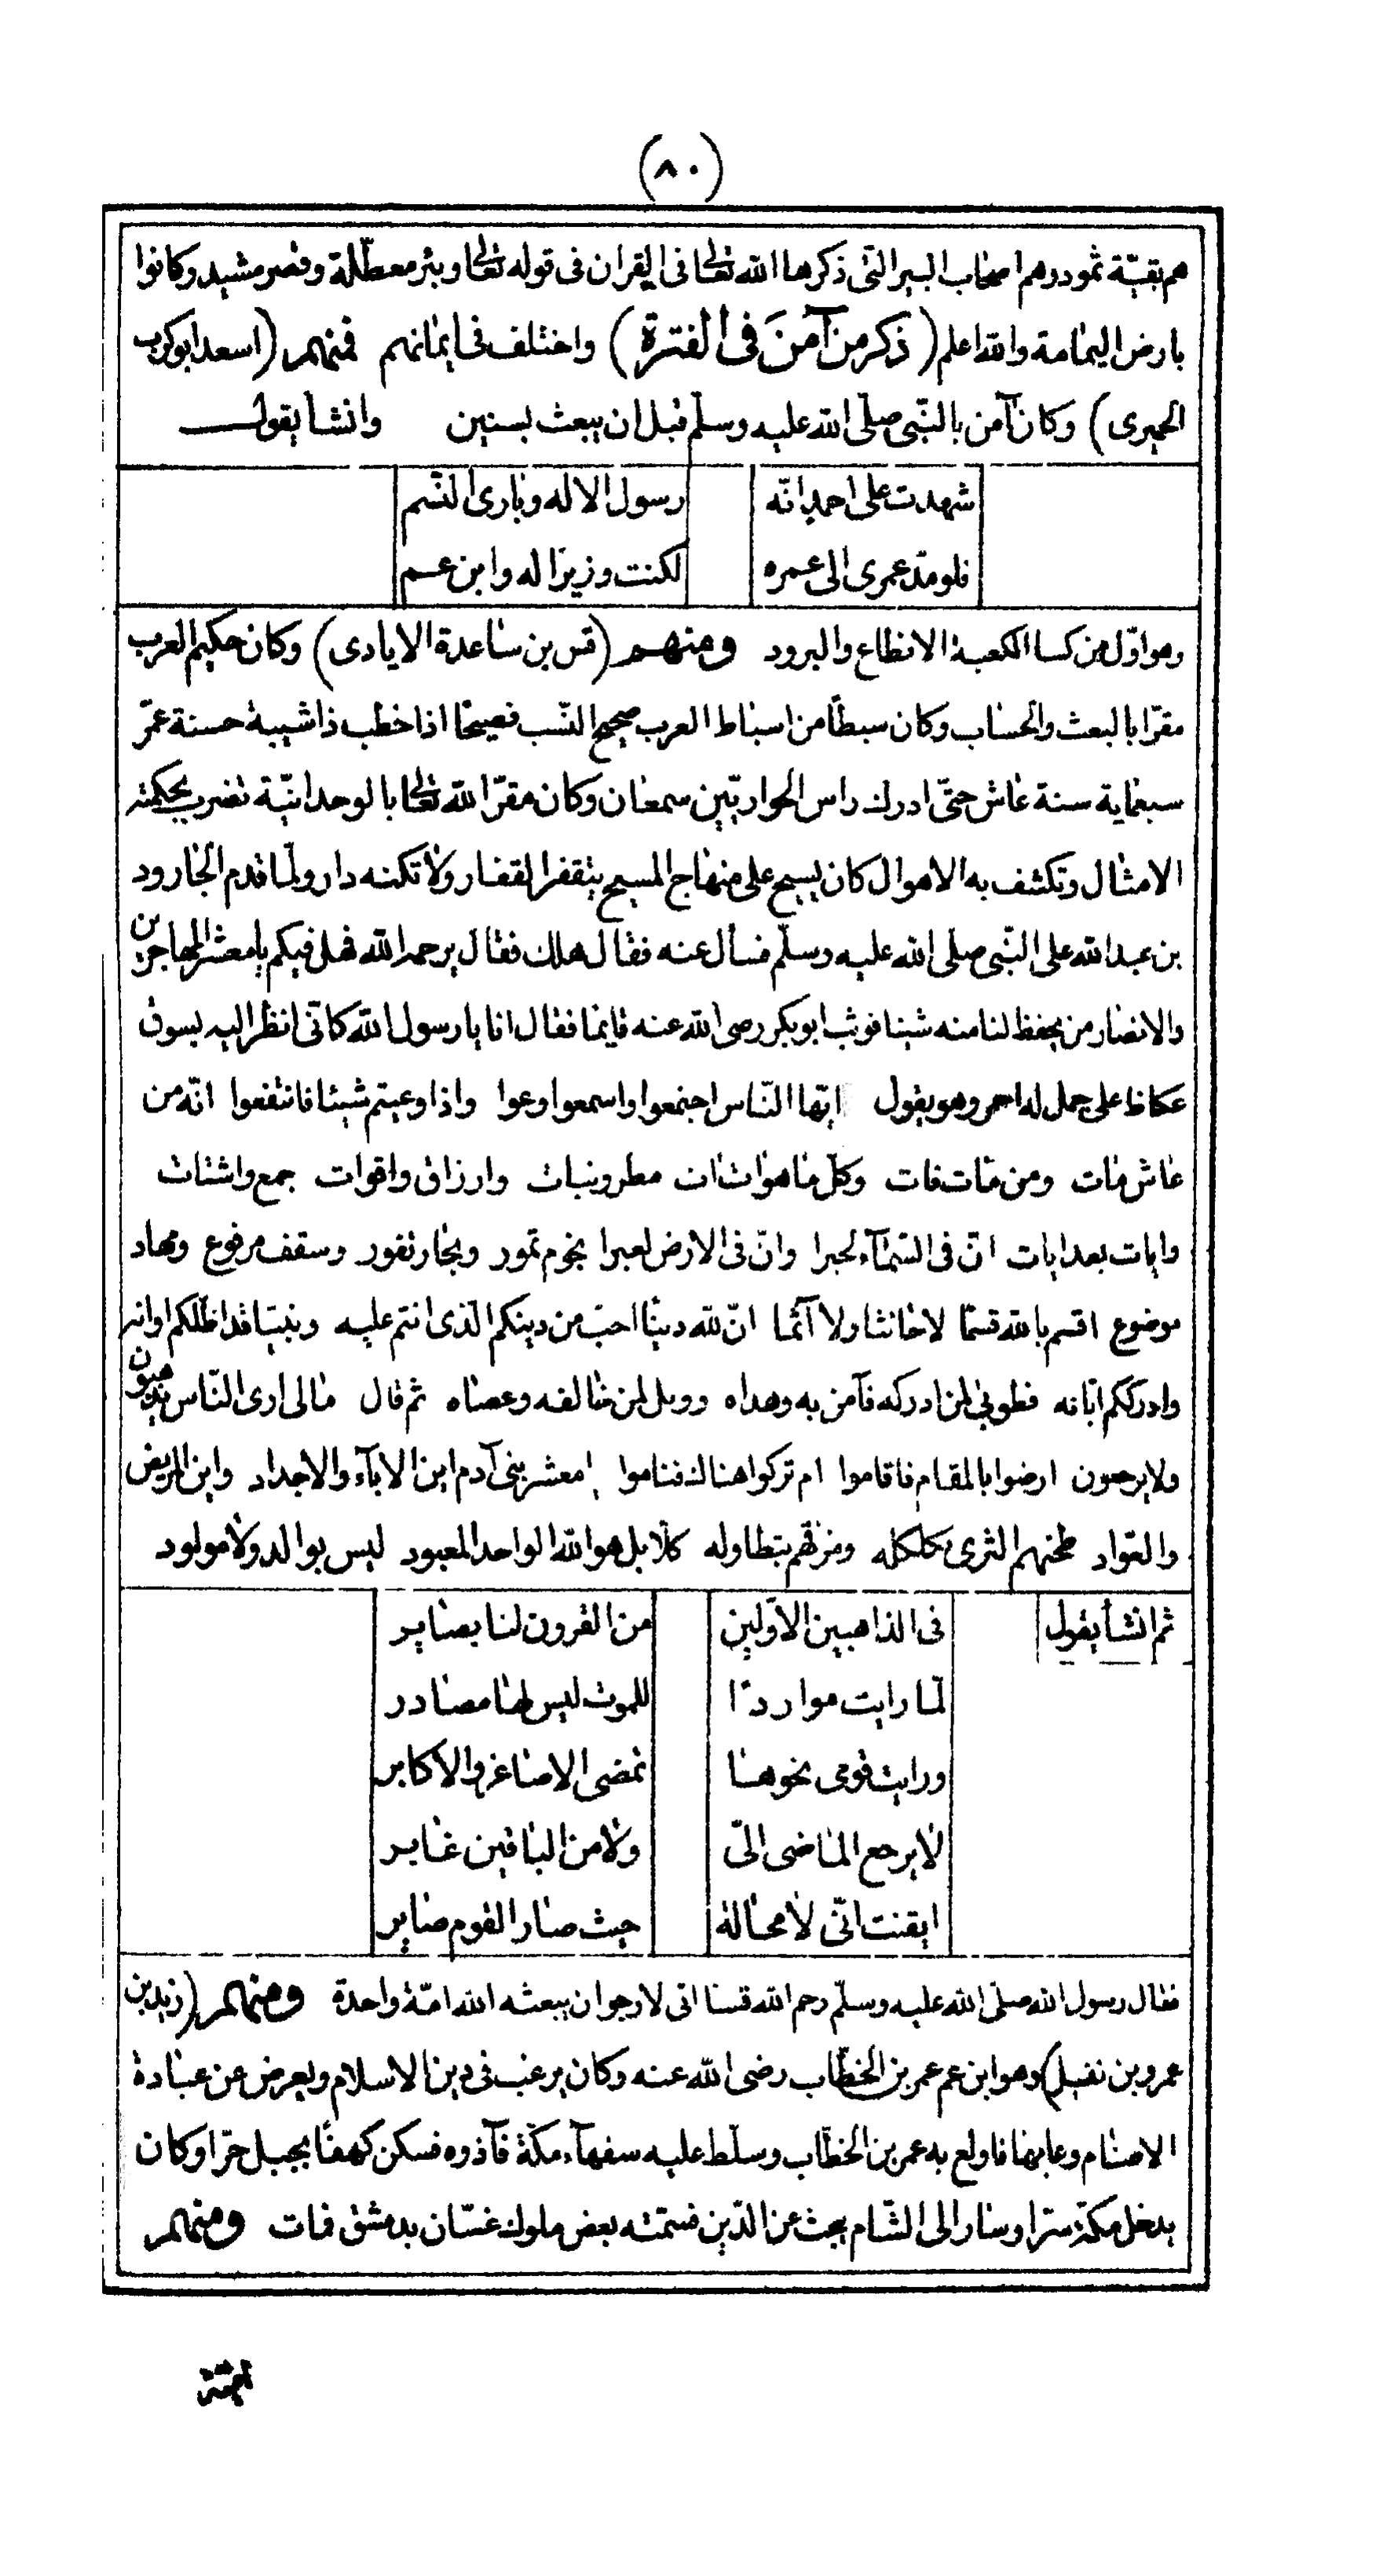 (٨٠)
هم بقيّة ثمود وهم اصحاب البير التى ذكرها الله تعالى فى القران فى قوله تعالى وبئر معطّلة وقصر مشيد وكانوا
بارض اليمامة والله اعلم (ذكر من آمنَ فى الفترة) واختلف فى ايمانهم فمنهم (اسعد ابو كرب
الحميرى) وكان آمن بالنّبى صلّى الله عليه وسلّم قبل ان يبعث بسنين وانشا يقول
شهدت على احمد انّه رسول الاله وبارى النّسم
فلو مدّ عمرى الى عمره لكنت وزيرًا له وابن عم
وهو اوّل من كسا الكعبة الانطاع والبرود ومنهم (قس بن ساعدة الايادى) وكان حكيم العرب
مقرّا بالبعث والحساب وكان سبطًا من اسباط العرب صحيح النّسب فصيحًا اذا خطب ذا شيبة حسنة عمّر
سبعماية سنة عاش حتّى ادرك راس الحواريّين سمعان وكان مقرّا لله تعالى بالوحدانيّة تضرب بحكمته
الامثال وتكشف به الاهوال كان يسيح على منهاج المسيح يتقفر القفار ولا تكنه دار ولمّا قدم الجارود
بن عبد الله على النّبى صلى الله عليه وسلّم فسأل عنه فقال هلك فقال يرحمه الله فهل فيكم يا معشر المهاجرين
والانصار من يحفظ لنا منه شيئا فوثب ابو بكر رضى الله عنه قايما فقال انا يا رسول الله كانّى انظر اليه بسوق
عكاظ على جمل له احمر وهو يقول ايّها النّاس اجتمعوا واسمعوا وعوا واذا وعيتم شيئا فانتفعوا انّه من
عاش مات ومن مات فات وكلّ ما هوات ات مطر ونبات وارزاق واقوات جمع واشتات
وايات بعد ايات انّ فى السّمآء لخبرا وانّ فى الارض لعبرا نجوم تمور وبحار تفور وسقف مرفوع ومهاد
موضوع اقسم بالله قسمًا لا حانثا ولا آثما انّ لله دينًا احبّ من دينكم الّذى انتم عليه ونبيّا قد اظلّكم اوانه
وادرككم ابّانه فطوبى لمن ادركه فآمن به وهداه وويل لمن خالفه وعصاه ثم قال مالى ارى النّاس يذهبون
ولا يرجعون ارضوا بالمقام فاقاموا ام تركوا هناك فناموا يا معشر بنى آدم اين الابآء والاجداد واين المريض
والعوّاد طحنهم الثرى بكلكله ومزقهم بتطاوله كلّا بل هو الله الواحد المعبود ليس بوالد ولا مولود
ثم انشأ يقول فى الذاهبين الاوّلين من القرون لنا بصاير
لمّا رايت مواردًا للموت ليس لها مصادر
ورايت قومى نحوها تمضى الاصاغر والاكابر
لا يرجع الماضى الىّ ولا من الباقين غابر
ايقنت انّى لا محالة حيث صار القوم صاير
فقال رسول الله صلى الله عليه وسلّم رحم الله قسا انى لارجو ان يبعثه الله امّة واحدة ومنهم (زيد بن
عمرو بن نفيل) وهو ابن عم عمر بن الخطّاب رضى الله عنه وكان يرغب فى دين الاسلام ويعرض عن عبادة
الاصنام وعابها فاولع به عمر بن الخطّاب وسلّط عليه سفهآء مكّة فآذوه فسكن كهفًا بجبل حرّا وكان
يدخل مكّة سرّا وسار الى الشّام يبحث عن الدّين فسمّته بعض ملوك غسّان بدمشق فمات ومنهم